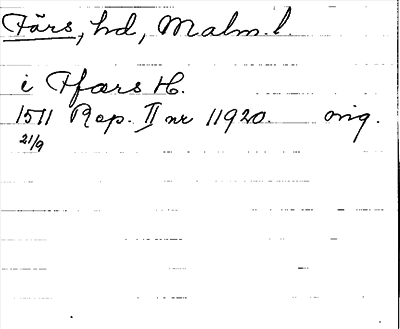 Färs, hd, Malm. l.
i Ffærs H.
1511 Rep. II nr 11920. orig.
21/9